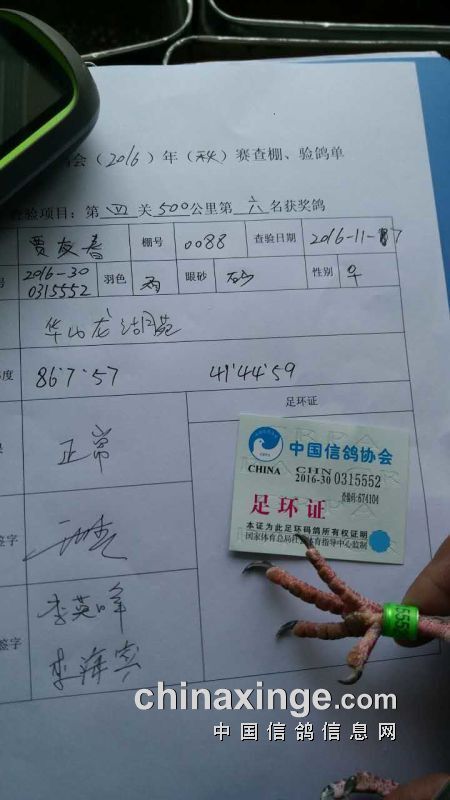 会(2016)年(秋)赛查棚、验鸽单
查验项目:第 四 关 500公里第 六 名获奖鸽
贾友春 棚号 0088 查验日期 2016-11-17
号 2016-30 0315552 羽色 雨 眼砂 砂 性别 ♀
度 86°7'57 41°44'59
足环证
正常
中国信鸽协会
CHINA CHN
2016-30 0315552
查询码:674104
足环证
本证为此足环码鸽所有权证明
国家体育总局社会体育指导中心监制
签字
李英峰
签字
chinaxinge.com
中国信鸽信息网